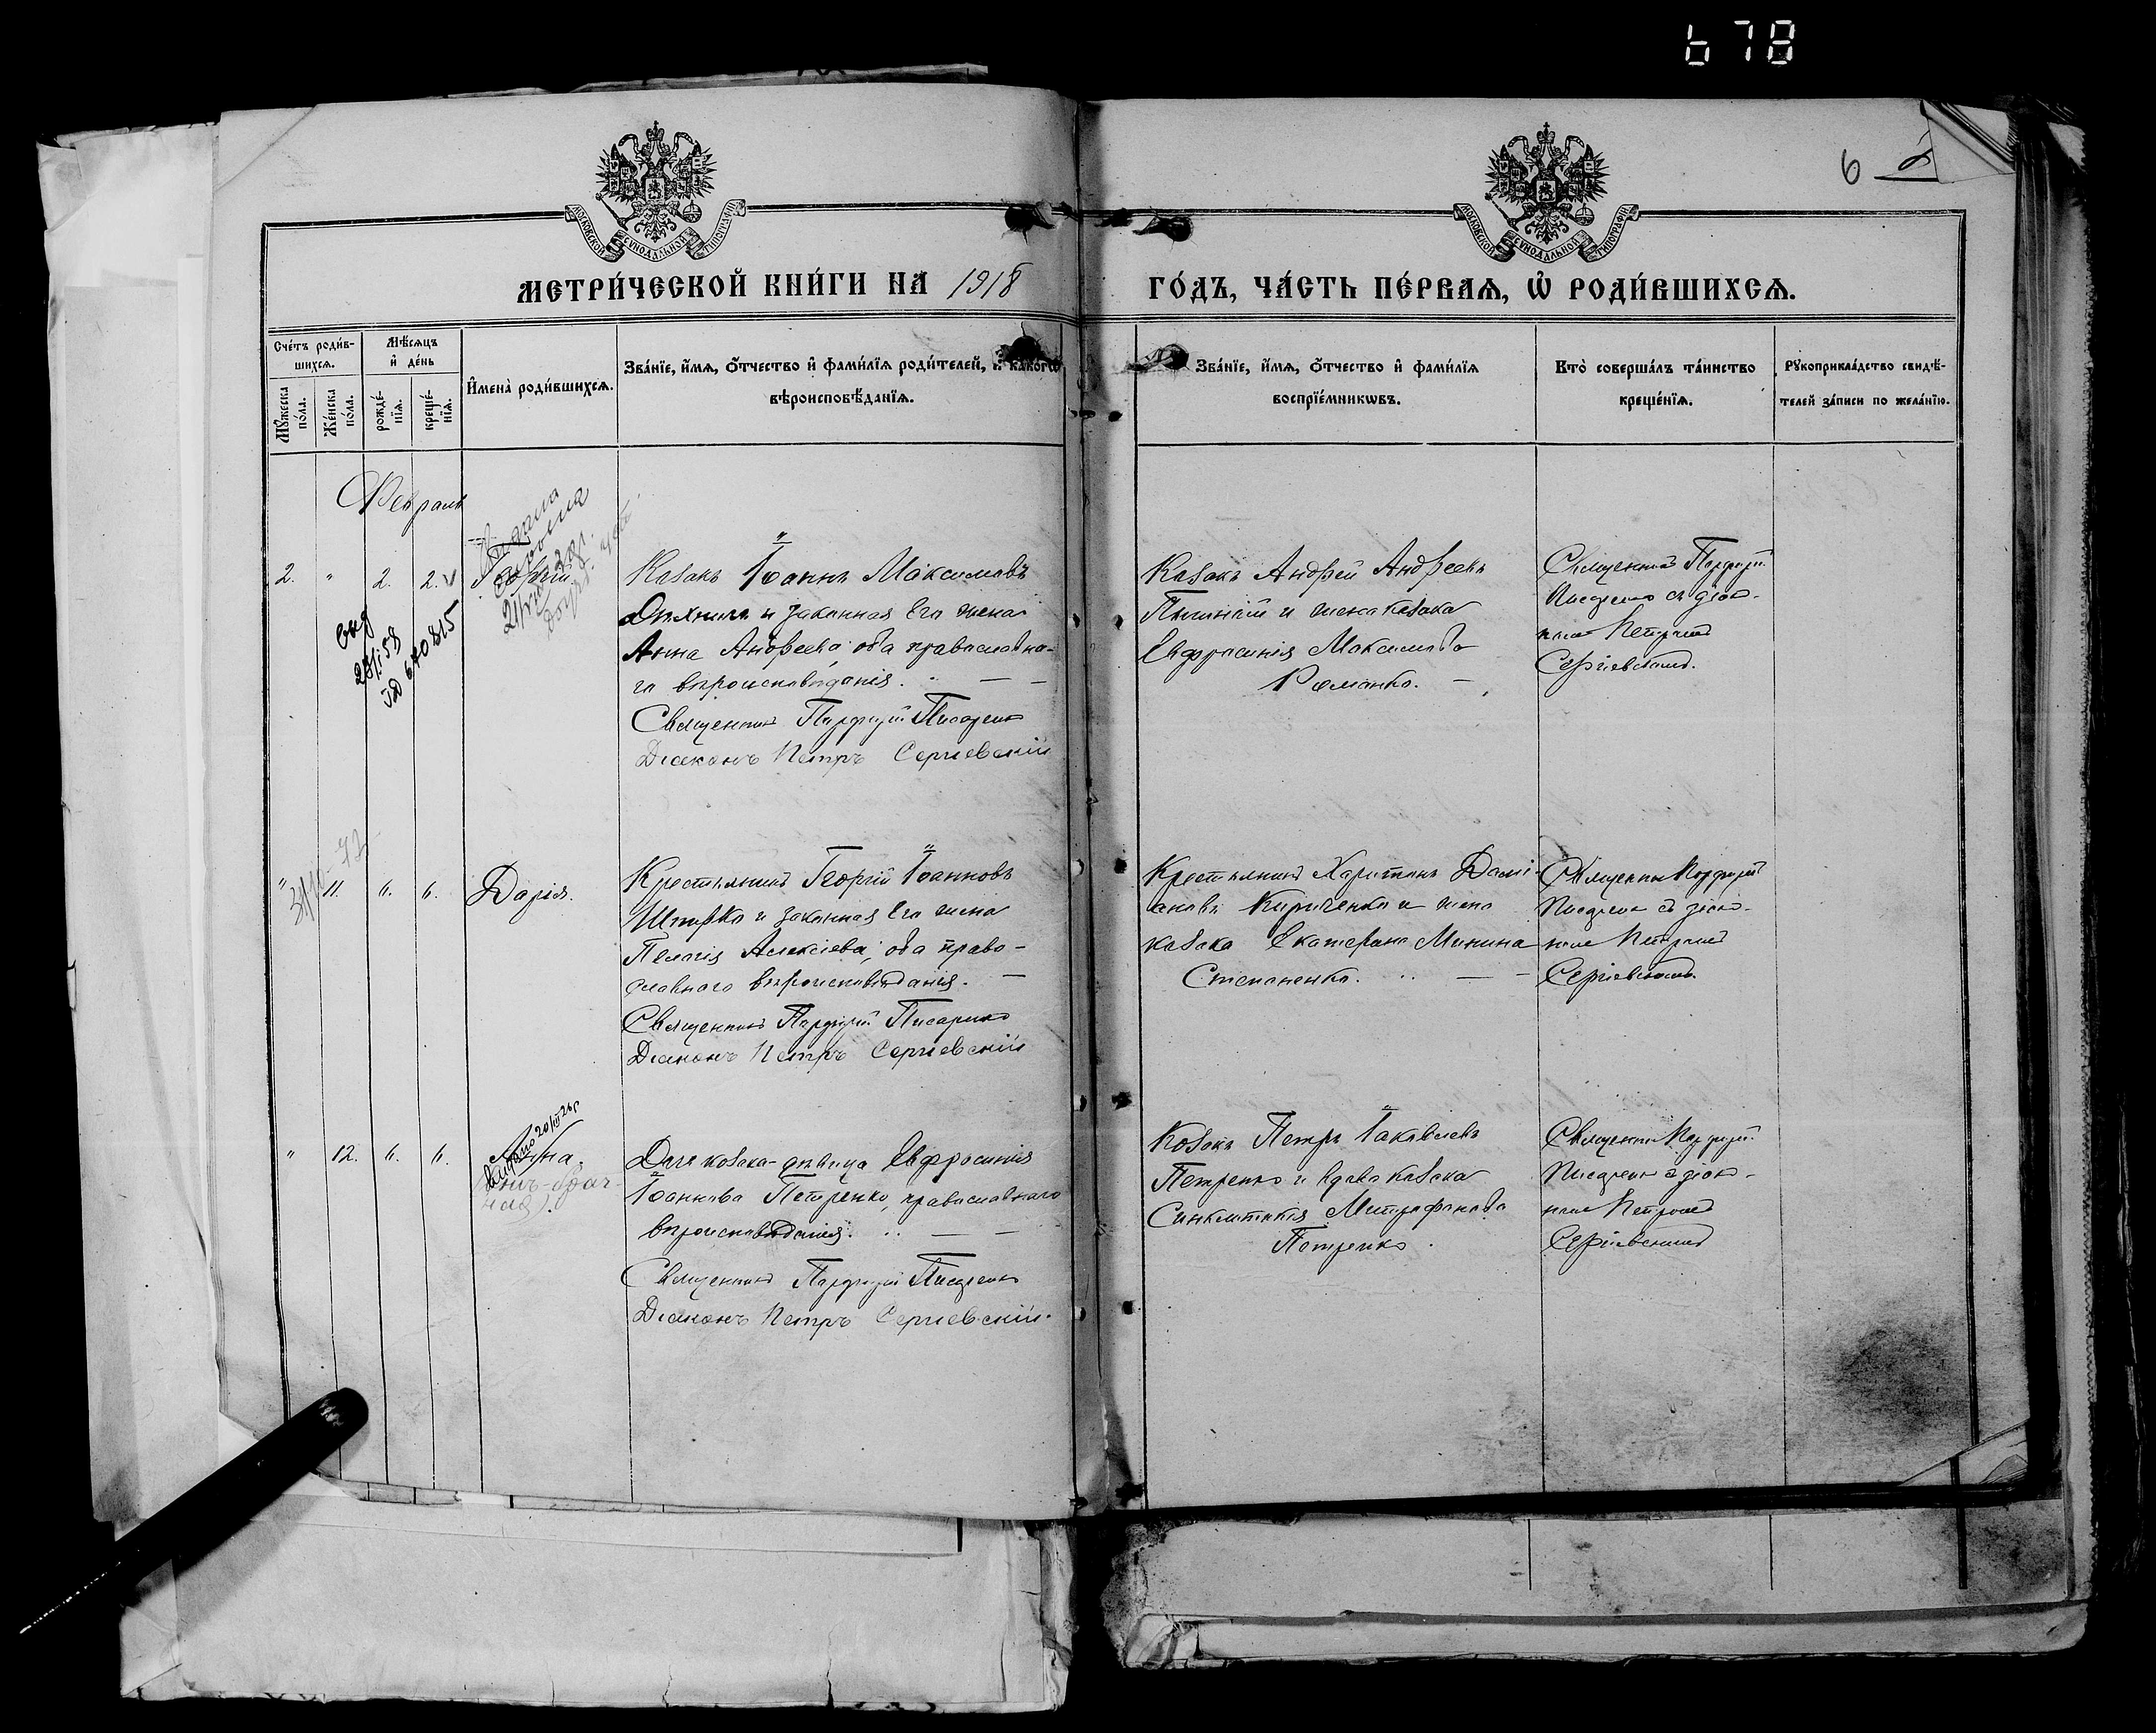 678
6
МОСКОВСКОЙ СѴНОДАЛЬНОЙ ТИПОГРАФІИ
МОСКОВСКОЙ СѴНОДАЛЬНОЙ ТИПОГРАФІИ
МЕТРИ́ЧЕСКОЙ КНИ́ГИ НА 1918
ГО́ДЪ, ЧА́СТЬ ПЕ́РВАѦ, Ѡ РОДИ́ВШИХСѦ.
Сче́тъ роди́в-
шихсѧ.
Мꙋжеска
по́ла.
Же́нска
по́ла.
Мѣ́сѧцъ
и҆ де́нь
рожде́-
нїѧ.
креще́-
нїѧ.
И҆мена̀ роди́вшихсѧ.
Зва́нїе, и҆́мѧ, ѻ҆́тчество и҆ фами́лїѧ роди́телей, и҆ како́гѡ
вѣроисповѣ́данїѧ.
Зва́нїе, и҆́мѧ, ѻ҆́тчество и҆ фами́лїѧ
воспрїе́мникѡвъ.
Кто̀ соверша́лъ та́инство
креще́нїѧ.
Рꙋкоприкла́дство свидѣ́-
телей за́писи по жела́нїю.
Февраль
2. " 2. 2. Георгій
Казакъ Іоаннъ Максимовъ
и законная его жена
Анна Андреева, оба православна-
го вѣроисповѣданія.
Священникъ Парфирій Писаренко
Діаконъ Петръ Сергіевскій
Казакъ Андрей Андреевъ
и жена казака
Евфросинія Максимова
Романко.
Священникъ Парфирій
Писаренко съ діако-
номъ Петромъ
Сергіевскимъ.
28/I 58
640815
" 11. 6. 6. Дарія.
Крестьянинъ Георгій Іоанновъ
и законная его жена
Пелагія Алексіева, оба право-
славнаго вѣроисповѣданія.
Священникъ Парфирій Писаренко
Діаконъ Петръ Сергіевскій
Крестьянинъ Харитонъ Дамі-
ановъ Кириченко и жена
казака Екатерина Минина
Степаненко.
Священникъ Парфирій
Писаренко съ діако-
номъ Петромъ
Сергіевскимъ.
" 12. 6. 6. Анна.
Дочь козака-дѣвица Евфросинія
Іоаннова Петренко, православнаго
вѣроисповѣданія.
Священникъ Парфирій Писаренко
Діаконъ Петръ Сергіевскій.
Козакъ Петръ Іаковлевъ
Петренко и вдова казака
Синклитикія Митрофанова
Петренко.
Священникъ Парфирій
Писаренко съ діако-
номъ Петромъ
Сергіевскимъ